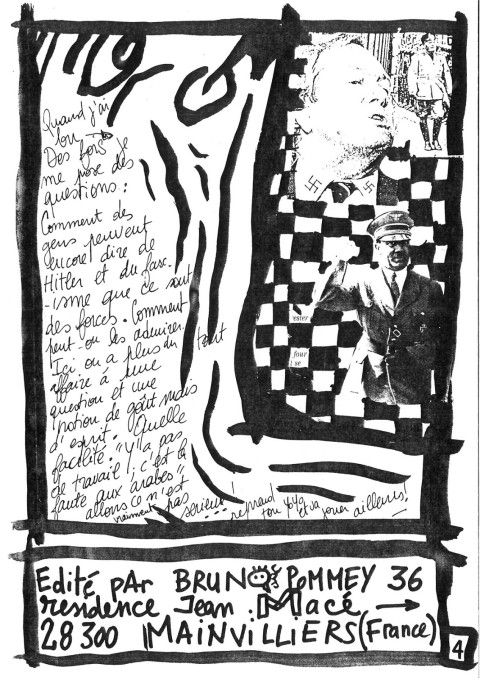 Quand j'ai
bon
Des fois je
me pose des
questions :
Comment des
gens peuvent
encore dire de
Hitler et du fasc-
-isme que ce sont
des forces. Comment
peut-on les admirer.
Ici on a plus du tout
affaire à une
question et une
notion de goût mais
d'esprit. Quelle
facilité : "y'a pas
de travail, c'est la
faute aux arabes"
allons ce n'est
vraiment pas
serieux !
reprend
ton yoyo et va jouer ailleurs !
ester
four
se
Edité pAr BRUNO POMMEY 36
residence Jean Macé →
28300 MAINVILLIERS (France)
4